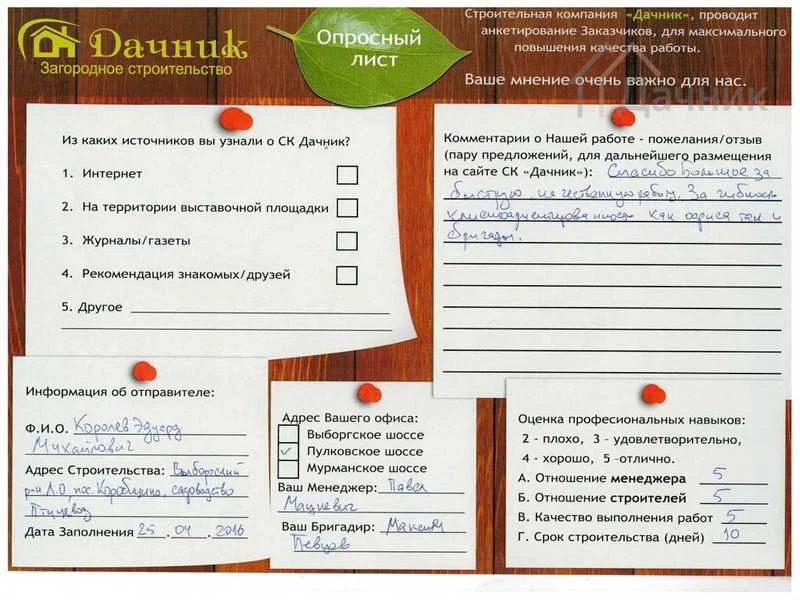 Дачник
Загородное строительство
Опросный
лист
Строительная компания «Дачник», проводит
анкетирование Заказчиков, для максимального
повышения качества работы.
Ваше мнение очень важно для нас.
Дачник
Из каких источников вы узнали о СК Дачник?
1. Интернет
2. На территории выставочной площадки
3. Журналы/газеты
4. Рекомендация знакомых/друзей
5. Другое
Комментарии о Нашей работе - пожелания/отзыв
(пару предложений, для дальнейшего размещения
на сайте СК «Дачник»): Спасибо большое за
быструю, качественную работу. За гибкость
клиентоориентированность как офиса так и
бригады.
Информация об отправителе:
Ф.И.О. Королев Эдуард
Михайлович
Адрес Строительства: Выборгский
р-н Л.О, пос. Коробицыно, садоводство
Дата Заполнения 25 . 04 . 2016
Адрес Вашего офиса:
Выборгское шоссе
✓ Пулковское шоссе
Мурманское шоссе
Ваш Менеджер: Павел
Мацкевич
Ваш Бригадир: Максим
Певцов
Оценка професиональных навыков:
2 - плохо, 3 - удовлетворительно,
4 - хорошо, 5 -отлично.
А. Отношение менеджера 5
Б. Отношение строителей 5
В. Качество выполнения работ 5
Г. Срок строительства (дней) 10